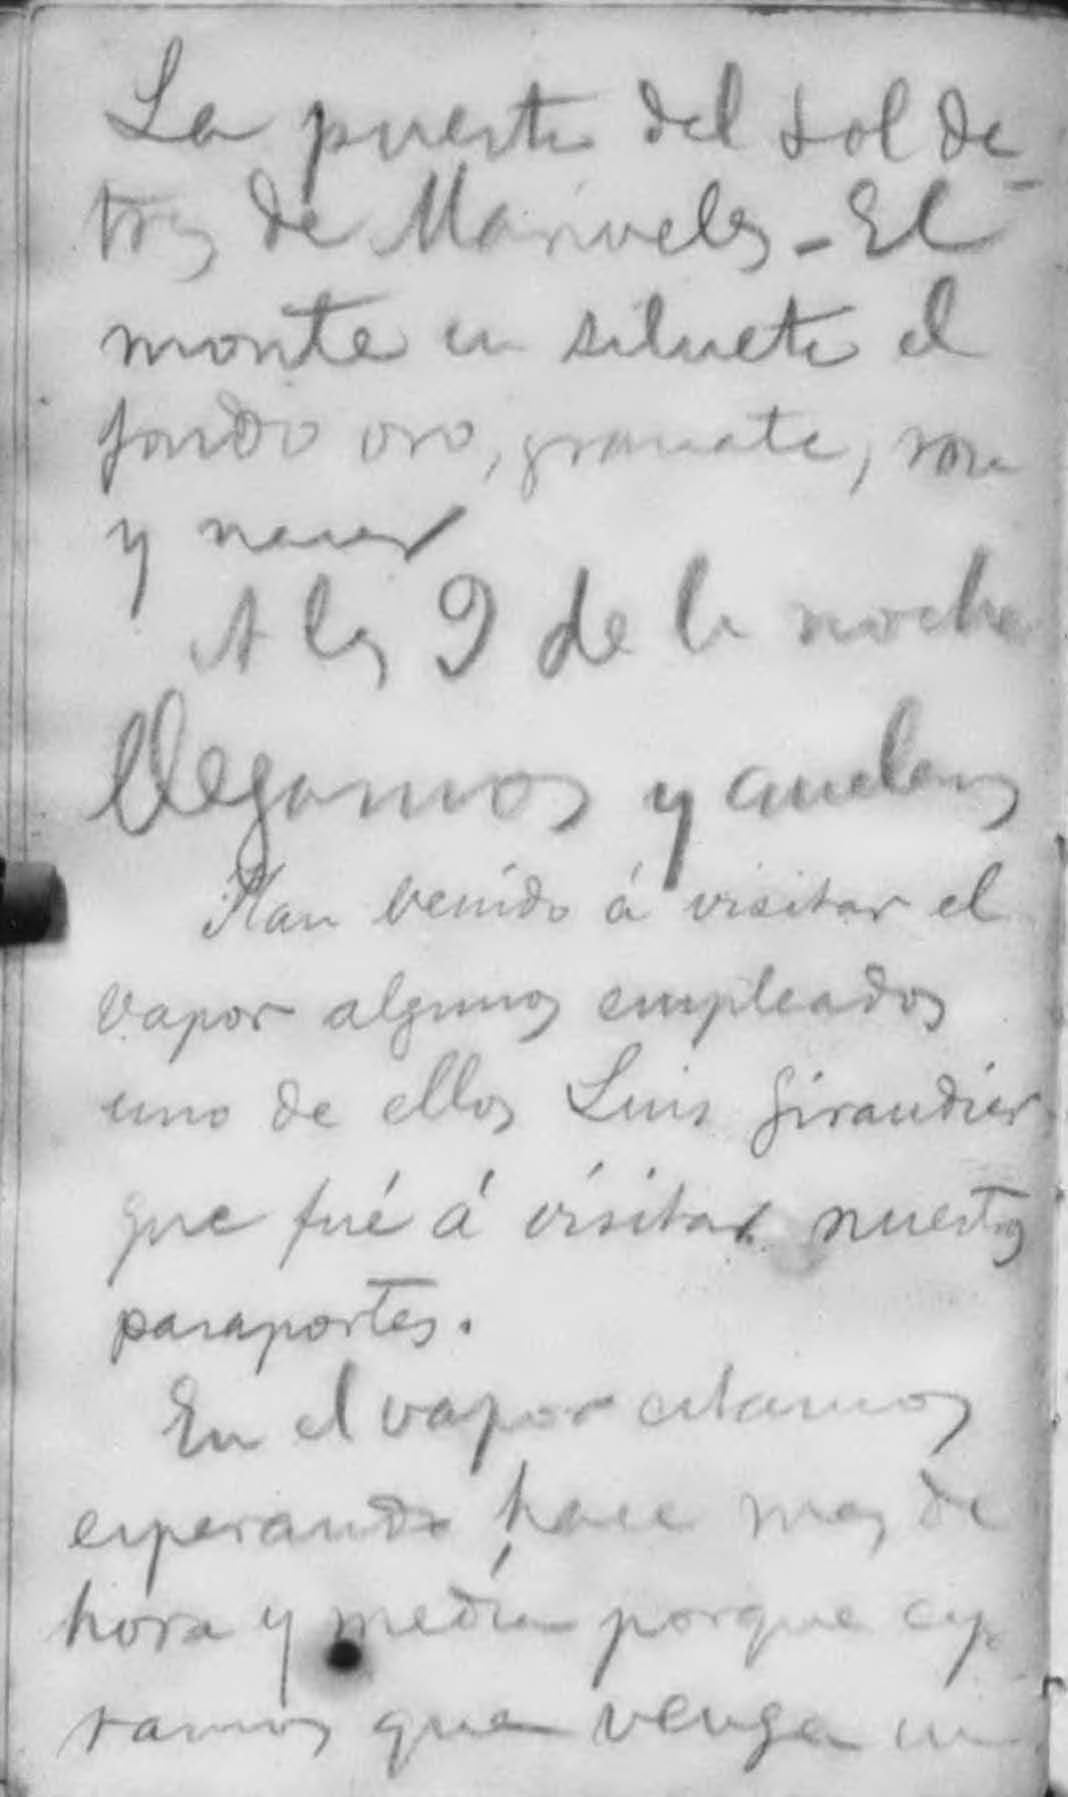 La puesta del sol de-
tras de Mariveles - El
monte en silueta el
fondo oro, granate, rosa
y nacar
A las 9 de la noche
llegamos y anclamos
Han venido á visitar el
vapor algunos empleados
uno de ellos Luis Giraudier
que fué á visitar nuestros
pasaportes.
En el vapor estamos
esperando hace mas de
hora y media porque espe
ramos que venga un